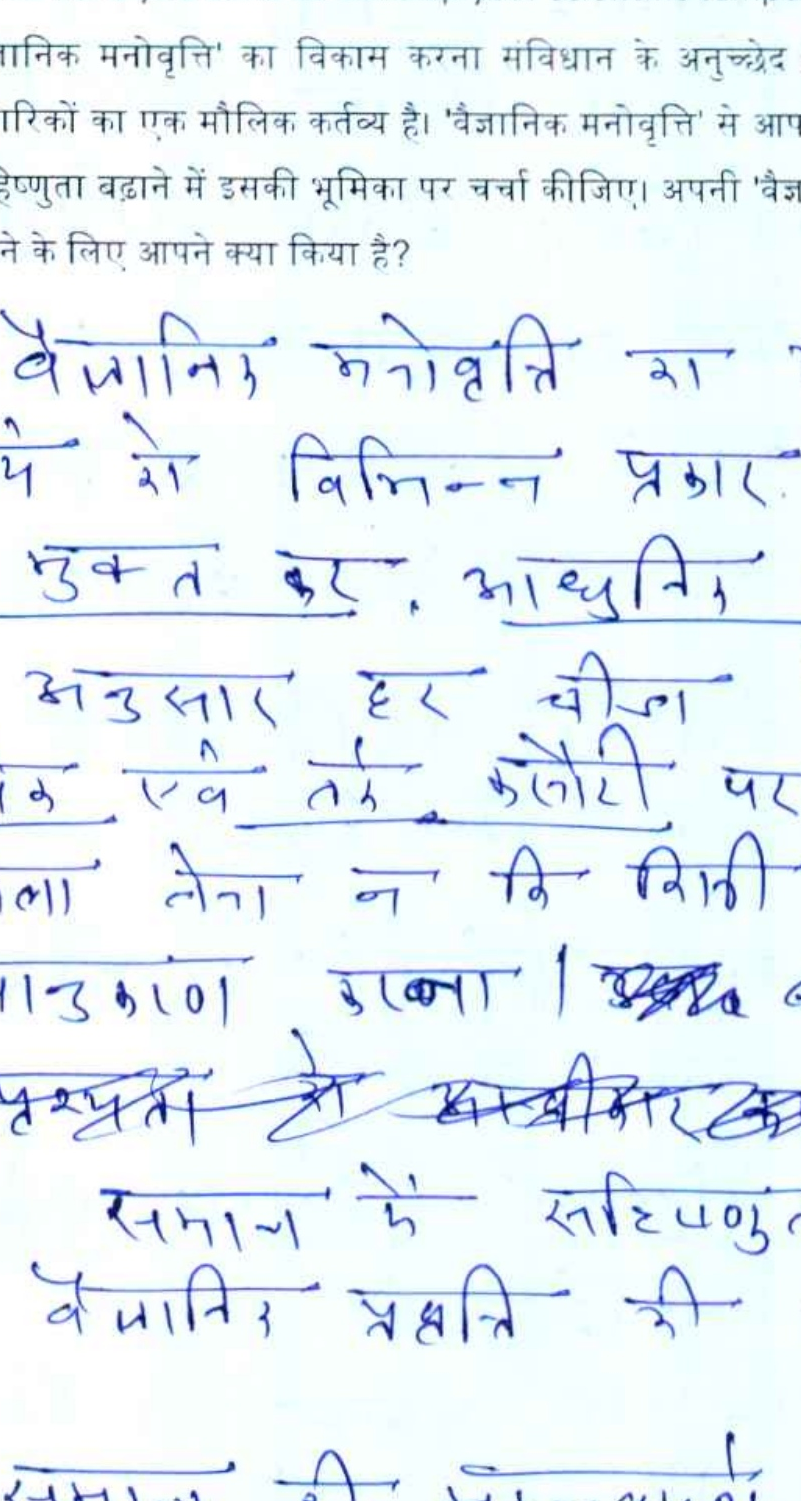 ानिक मनोवृत्ति' का विकास करना संविधान के अनुच्छेद
ारिकों का एक मौलिक कर्तव्य है। 'वैज्ञानिक मनोवृत्ति' से आप
हिष्णुता बढ़ाने में इसकी भूमिका पर चर्चा कीजिए। अपनी 'वैज्ञ
ने के लिए आपने क्या किया है?
वैज्ञानिक मनोवृत्ति का
को विभिन्न प्रकार
मुक्त कर, आधुनिक
अनुसार हर चीज
एवं तर्क कसौटी पर
लेना न कि किसी
करना।
समाज में सहिष्णुत
वैज्ञानिक प्रवृत्ति की